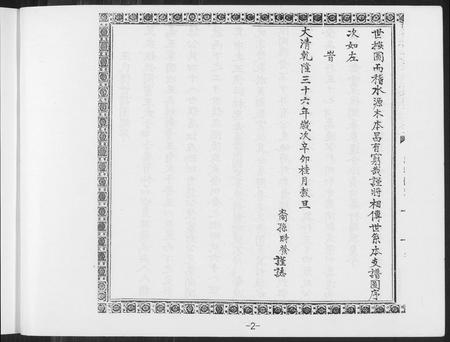 世按圖而稽水源木本昌有窮哉謹將相傳世系本支譜圖序
次如左
旹
大清乾隆三十六年歲次辛卯桂月穀旦
裔孫時發謹誌
-2-